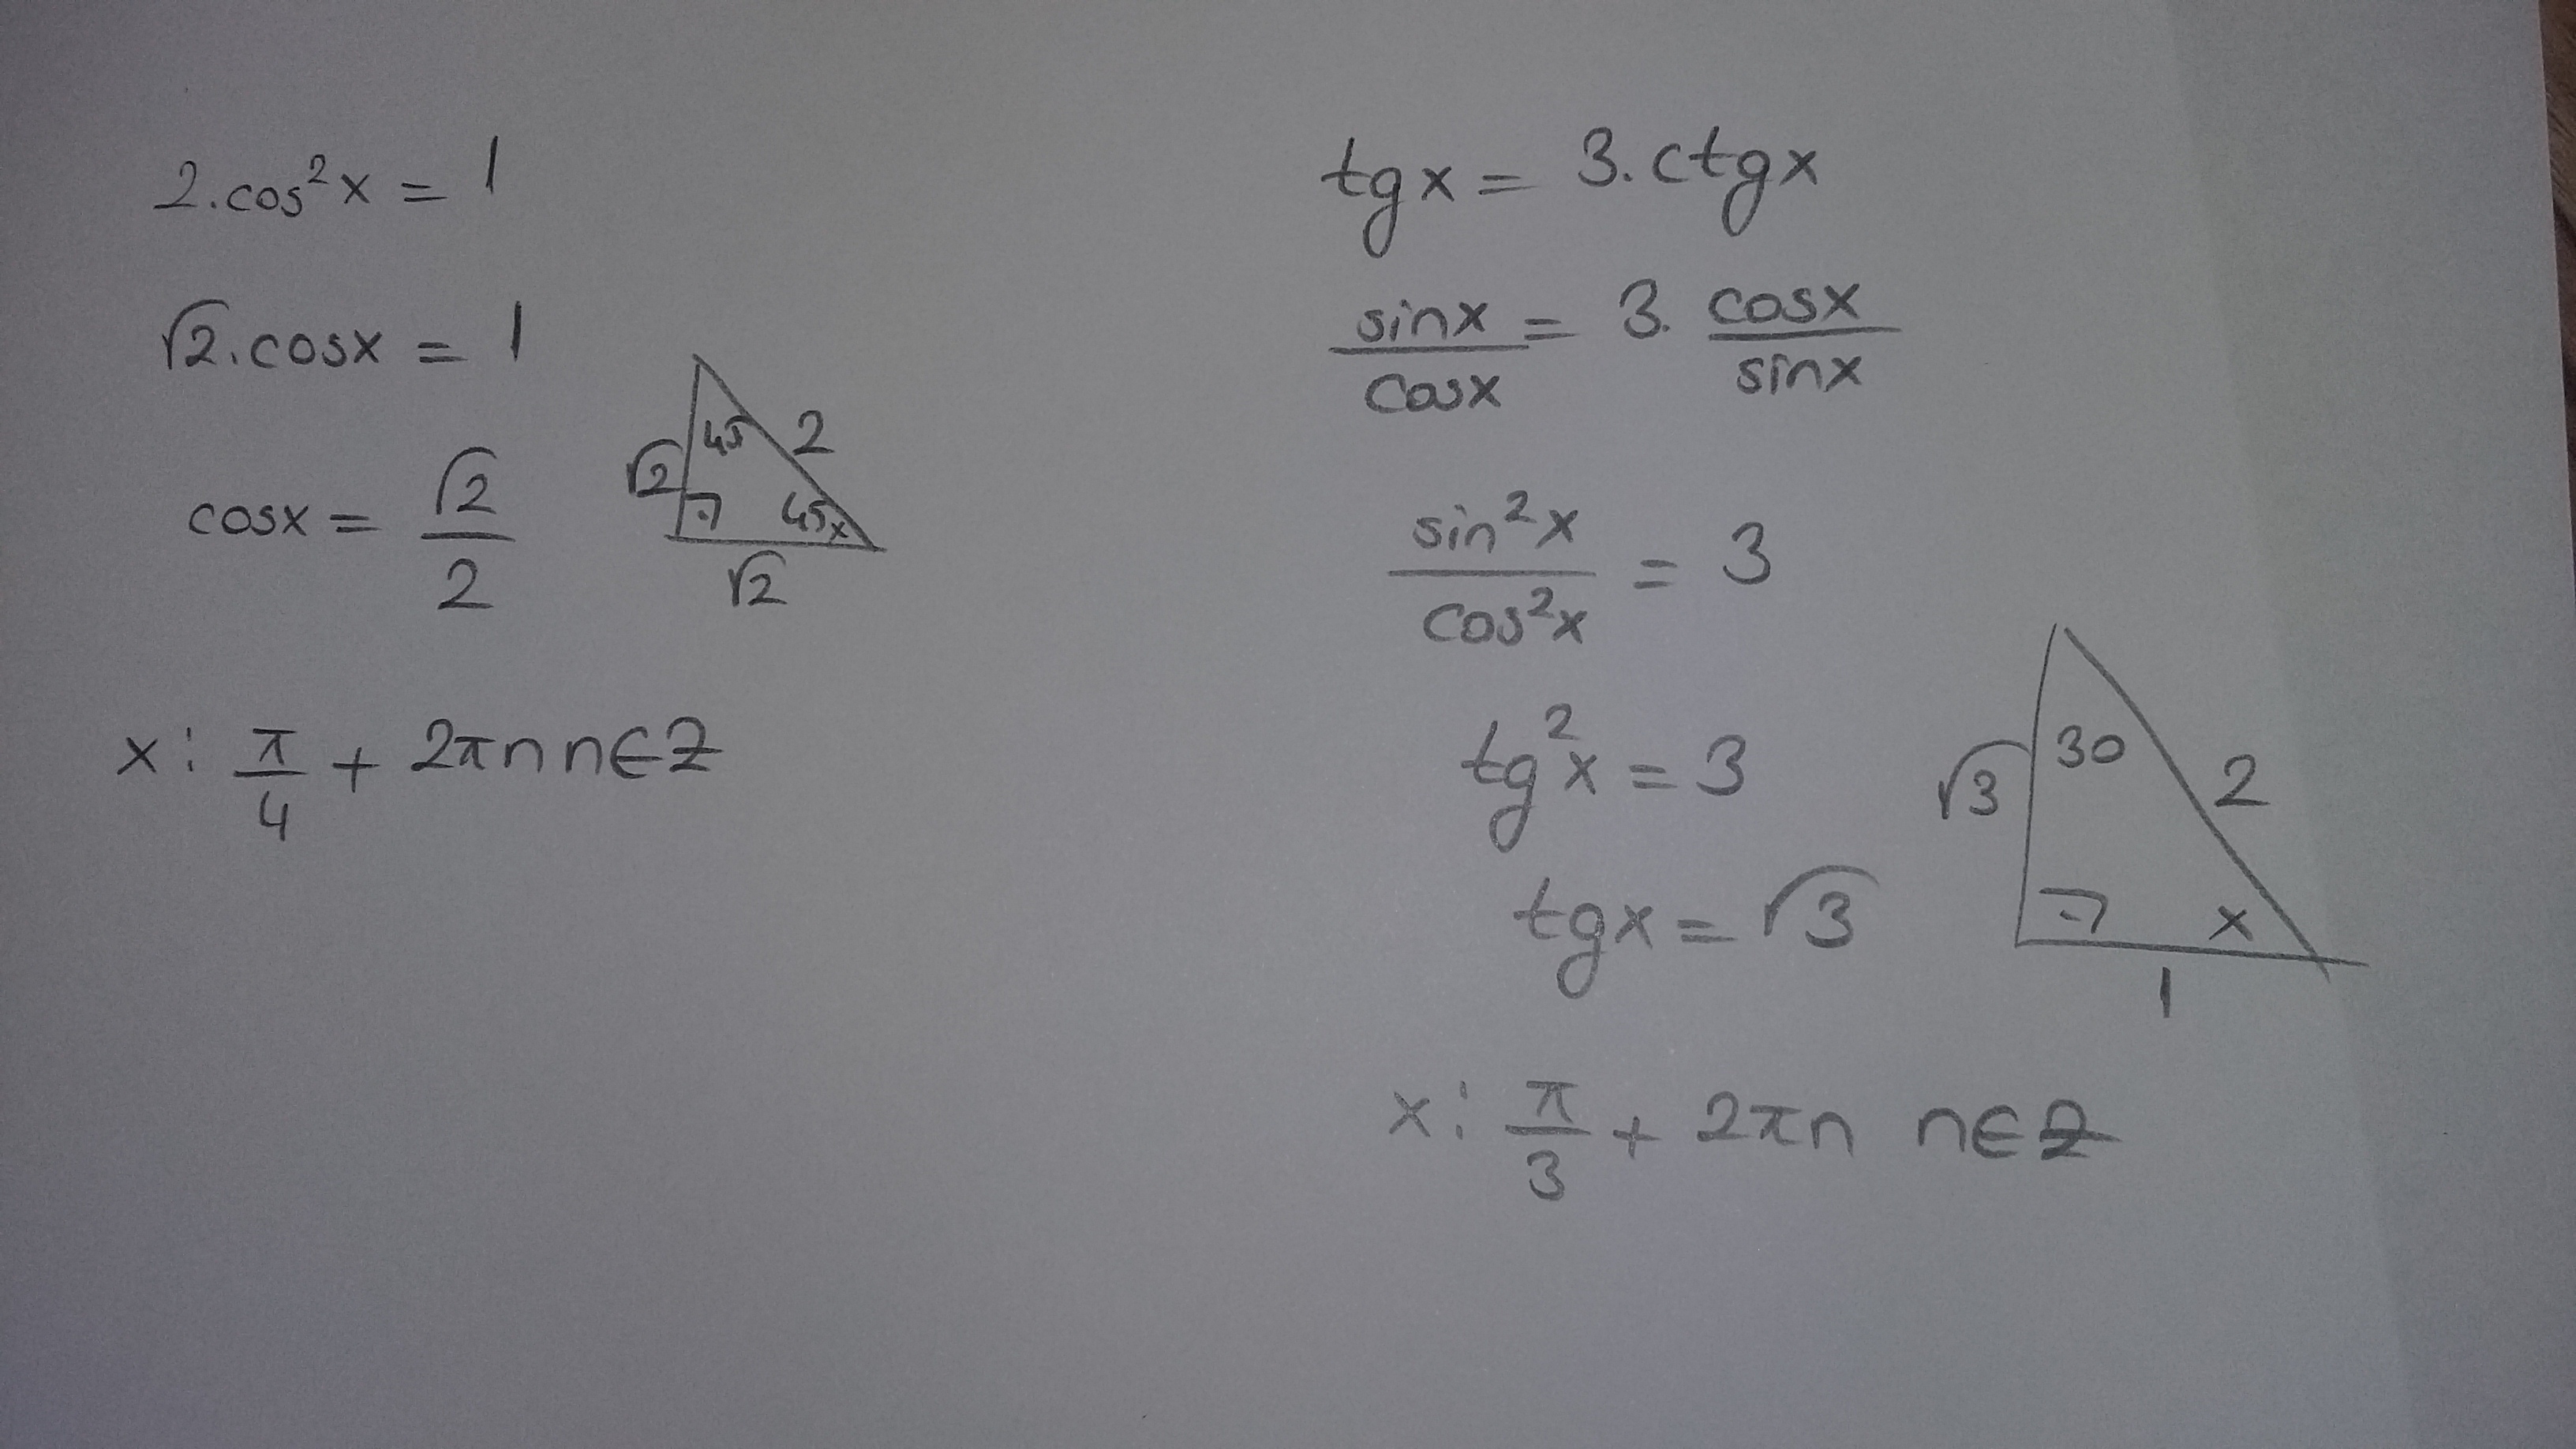 2.cos²x = 1
√2.cosx = 1
cosx = √2/2
45 2
√2 45 x
√2
x: π/4 + 2πn n∈Z
tgx = 3.ctgx
sinx/cosx = 3. cosx/sinx
sin²x/cos²x = 3
tg²x = 3
tgx = √3
√3 30 2
x
1
x: π/3 + 2πn n∈Z